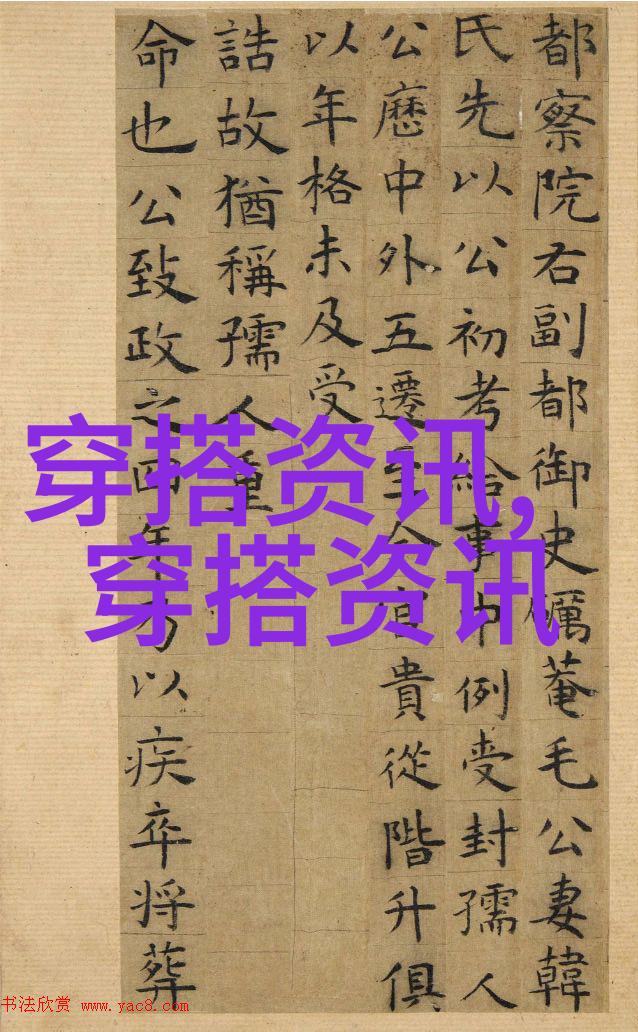 都察院右副都御史厲菴毛公妻韓
氏先以公初考給事中例受封孺人
公歷中外五遷至今官貴從階升俱
以年格未及受
誥故猶稱孺人重
命也公致政之四年乃以疾卒将葬
穿搭资讯,
穿搭资讯
书法欣赏 www.yac8.com